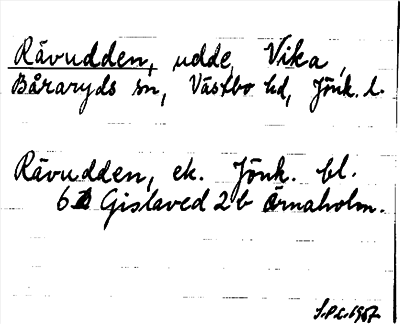 Rävudden, udde, Vika,
Båraryds sn, Västbo hd, Jönk. l.
Rävudden, ek. Jönk. bl.
6 Gislaved 2 b Ärnaholm.
S.P.L. 1967